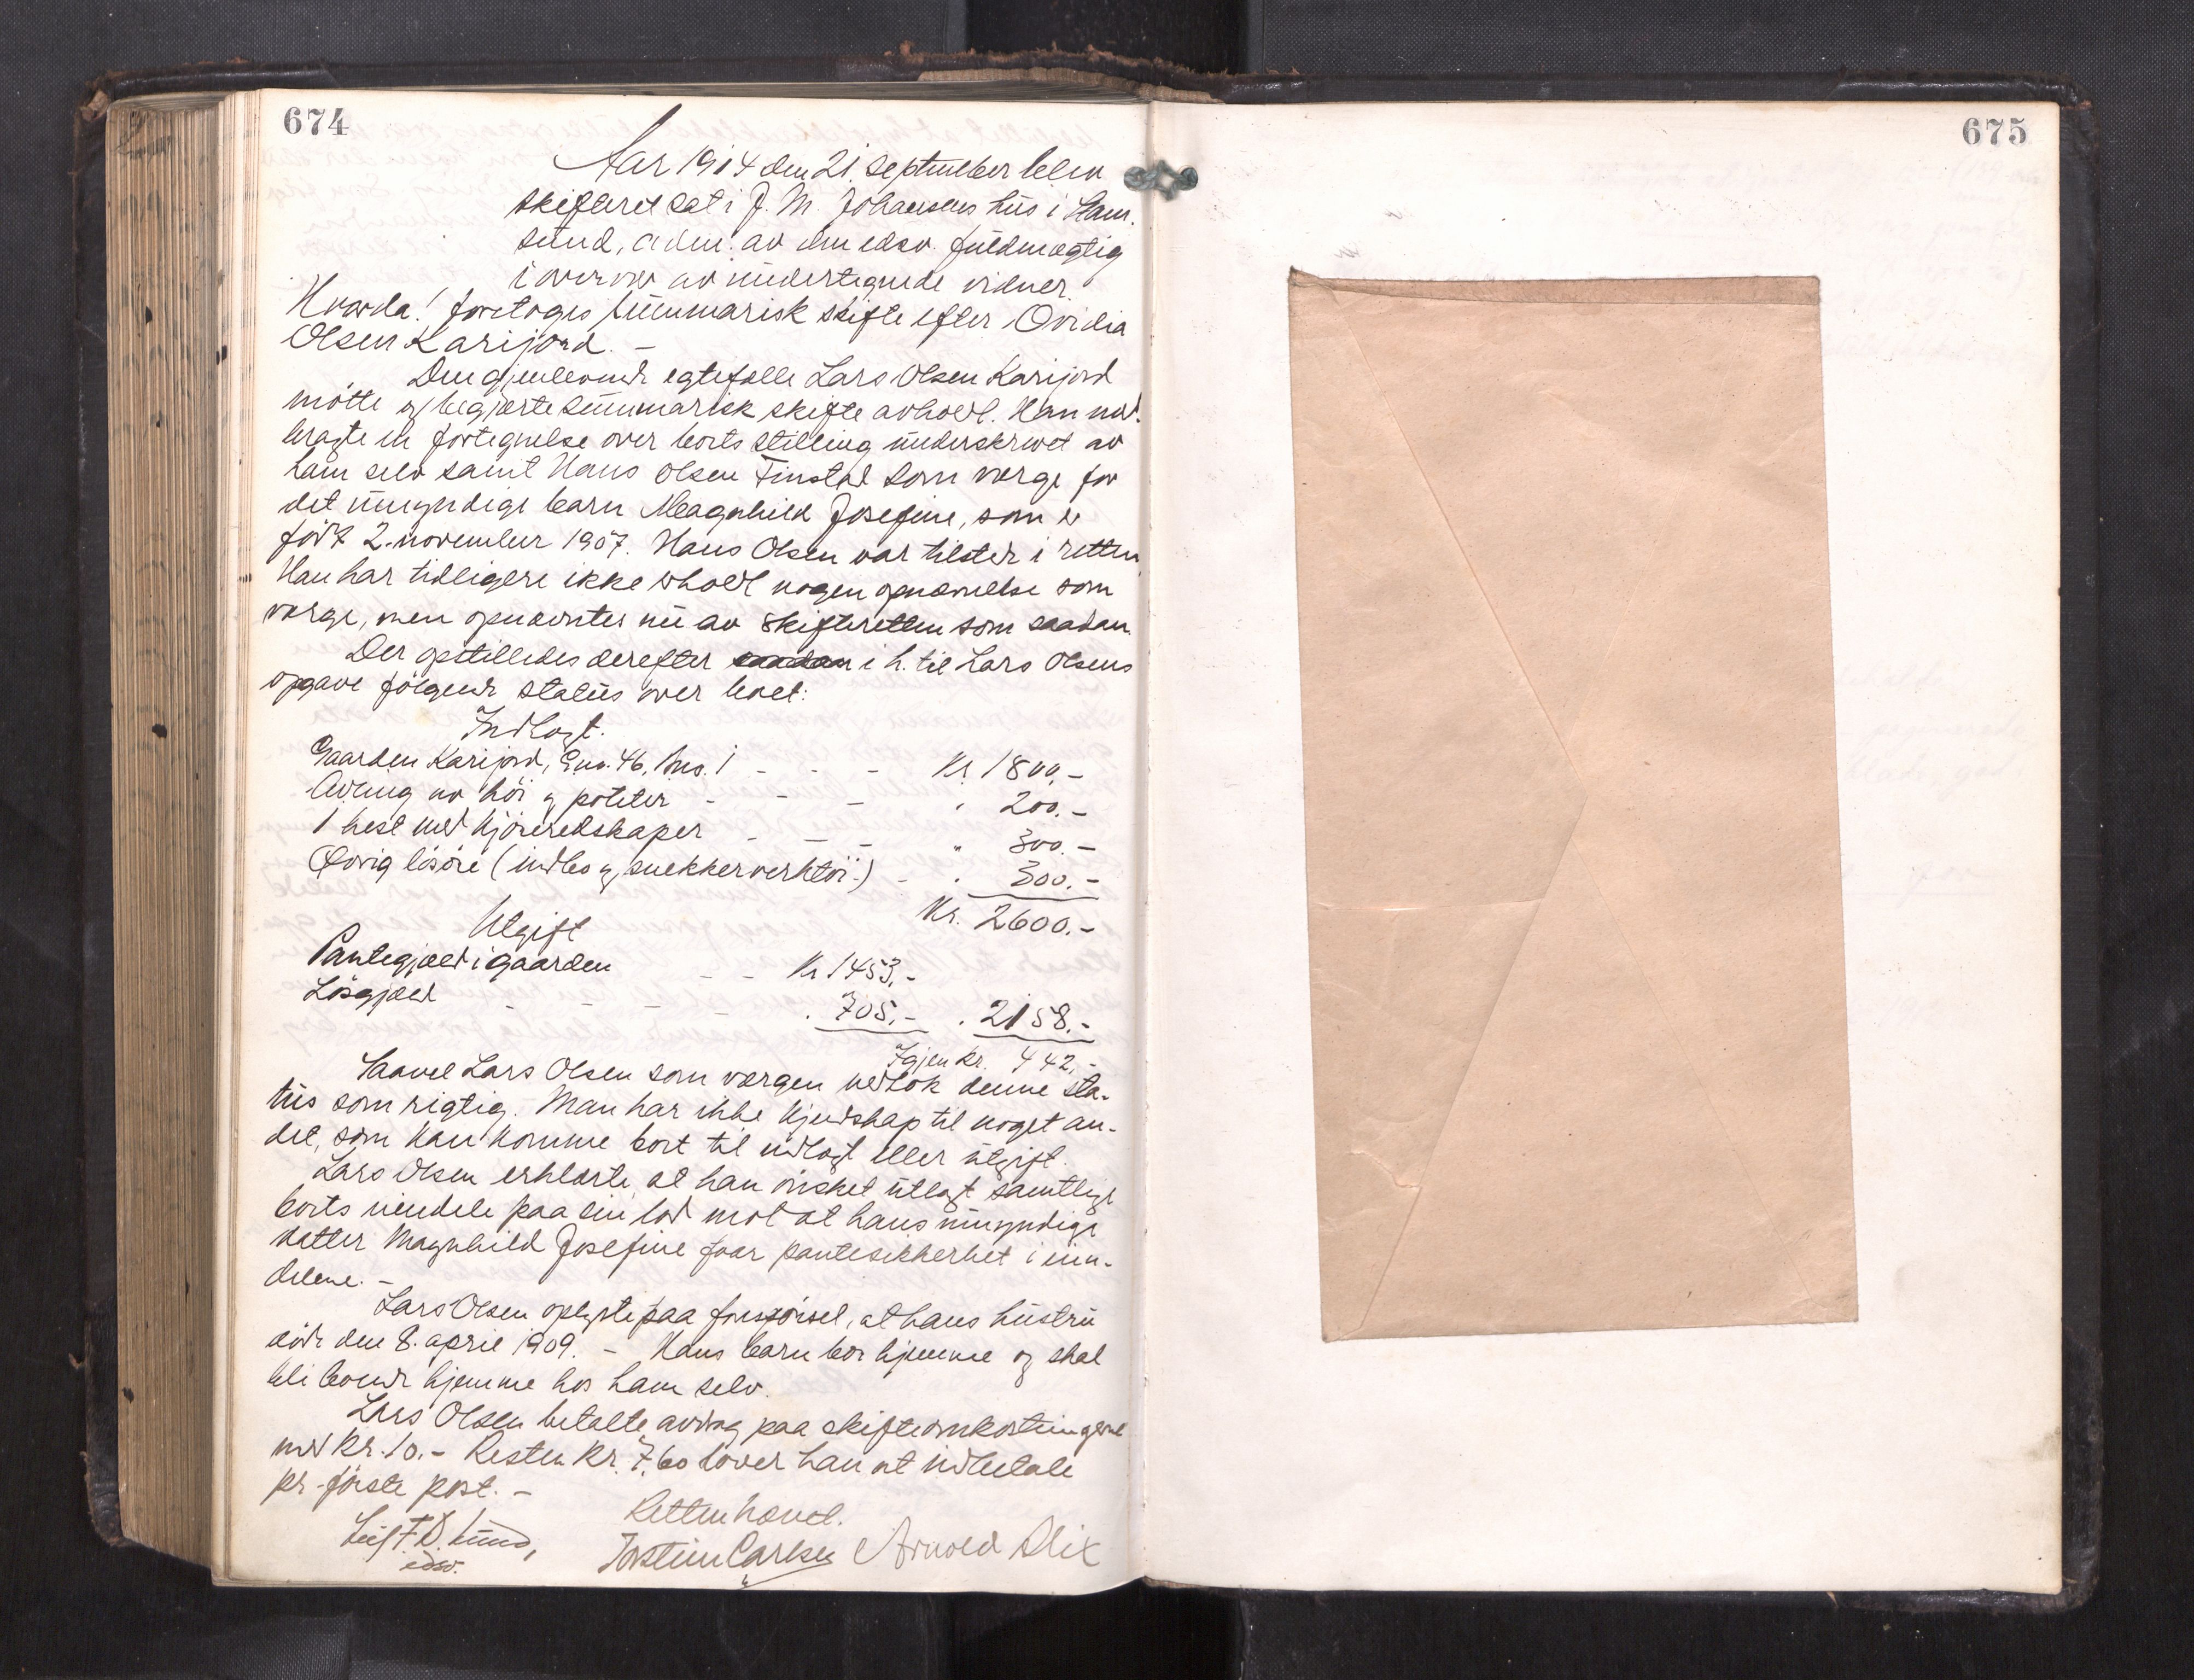 674
Aar 1914 den 21. september blev
skifteret sat i J. M. Johansens hus i Ham-
sund, adm. av den edsv. fuldmægtig
i overvær av undertegnede vidner.
Hvorda! foretoges summarisk skifte efter Ovidia
Olsen Karijord. –
Den gjenlevende egtefælle Lars Olsen Karijord
møtte og begjærte summarisk skifte avholdt. Han med-
bragte en fortegnelse over boets stilling underskrevet av
ham selv samt Hans Olsen Finstad som verge for
det umyndige barn Magnhild Josefine, som er
født 2. november 1907. Hans Olsen var tilstede i retten
Han har tidligere ikke erholdt nogen opnævnelse som
verge, men opnævntes nu av skifteretten som saadan.
Der opstilledes derefter i h. til Lars Olsens
opgave følgende status over boet:
Indtægt.
Gaarden Karijord, Gno. 46, Bno. 1 - - - Kr. 1800.-
Avling av höi og poteter - - - " 200.-
1 hest med kjøreredskaper - - - " 300.-
Øvrig løsøre (indbo og snekkerverktøi) - " 300.-
Kr. 2600.-
Utgift
Pantegjæld i gaarden - - Kr 1453.-
Løsgjæld - - - - " 705.- " 2158.-
Igjen kr. 442.-
Saavel Lars Olsen som vergen vedtok denne sta-
tus som rigtig. Man har ikke kjendskap til noget an-
det, som kan komme boet til indtægt eller utgift.
Lars Olsen erklærte, at han ønsket utlagt samtlige
boets eiendele paa sin lod mot at hans umyndige
datter Magnhild Josefine faar pantesikkerhet i eien-
delene. –
Lars Olsen oplyste paa forespørsel, at hans hustru
døde den 8. april 1909. – Hans barn bor hjemme og skal
bli boende hjemme hos ham selv.
Lars Olsen betalte avdrag paa skifteomkostningerne
med kr. 10.- Resten kr. 7.60 lover han at indbetale
pr. første post. –
Retten hævet.
Leif F. D. Lund,
edsv.
Torstein Carlsen Arnold Slix
675